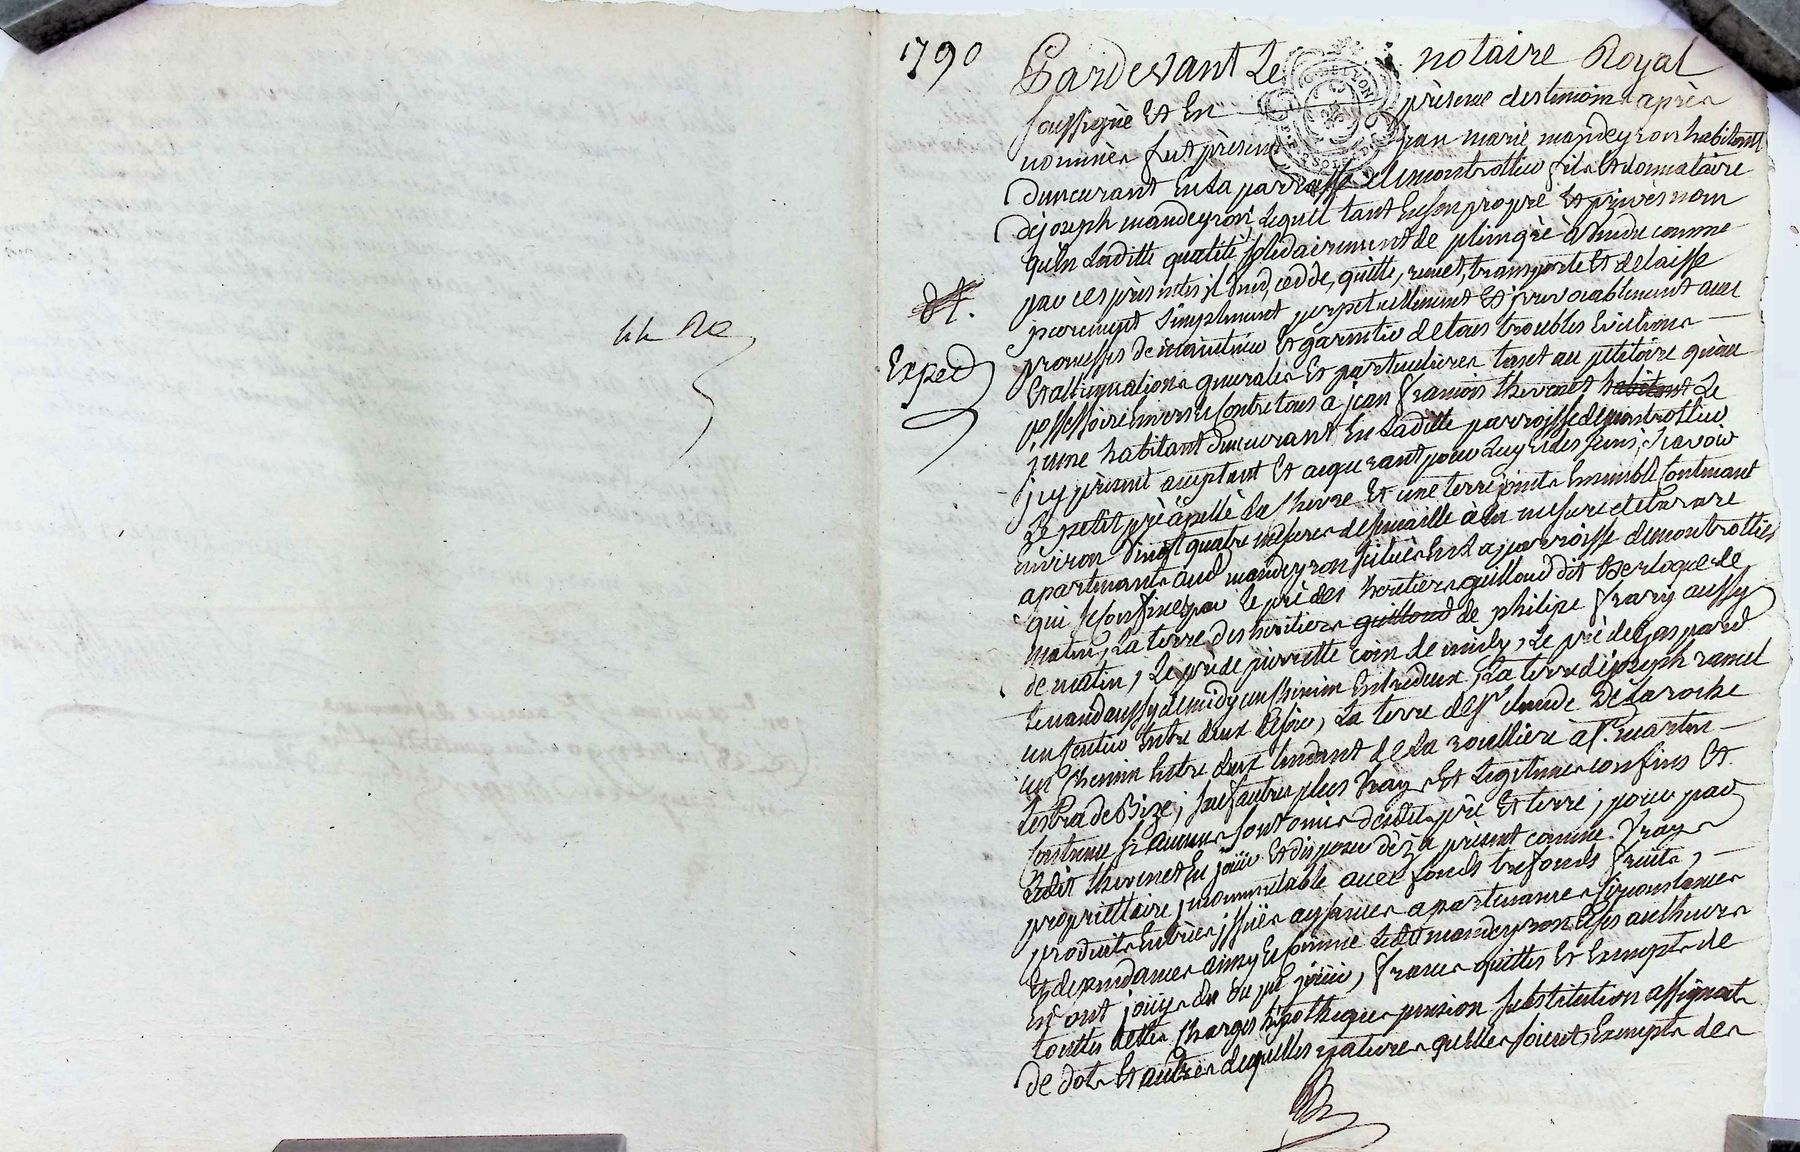 1790
Pardevant Le notaire Royal
soussignè Et En présence des temoins après
nommès fut présent jean marie mandeyron habitant
demeurant En La parroisse de montrottier fils Et donnataire
de joseph mandeyron, Lequel tant En son propre Et privès nom
qu'en Laditte qualitè solidairement de plein grè à vendu comme
par ces présentes il vend, cedde, quitte, remet, transporte Et delaisse
purement simplement perpetuellement Et jrrevocablement avec
promesses de maintenir Et garentir de tous troubles Evictions
Et allienations generales Et particulieres tant au petitoire qu'au
possessoire Envers Et Contre tous a jean françois thevenet habitant Le
jeune habitant demeurant En Laditte parroisse de montrottier
jcy présent acceptant Et acquerant pour Luy Et des siens, sçavoir
Le petit prè apellè La Et une terre joints Ensemble Contenant
Environ vingt quatre mesures de semaille à La mesure de tarare
apartenants aud mandeyron situès En La parroisse de montrottier
qui se Confinent par le prè des heritiers guilloud dit de
matin, La terre des heritiers guilloud de philipe aussy
de matin, Le prè de pierrette coin de midy, Le prè de gaspard
aussy de midy un Chemin Entredeux, La terre de joseph ramel
un sentier Entre deux de soir, La terre de Sr claude De La roche
un Chemin Entre deux tendant de La roullière à St. martin
de Bize; sauf autres plus vrays Et Legitimes confins Et
Contenue si aucuns sont omis desdits prè Et terre; pour par
Ledit thevenet En joüir Et disposer dèz à présent comme vray
proprietaire jncommutable avec fonds trefonds fruits,
produits Entrèes jssües aysances apartenances Circonstances
Et dependances ainsy Et comme Ledit mandeyron Et ses autheurs
En ont joüy dû Ou pû joüir, francs quittes Et Exempts de
touttes dettes Charges hipotheques pension substitution assignats
de dots Et autres de quelles natures quelles soient, Exempts des
Exped